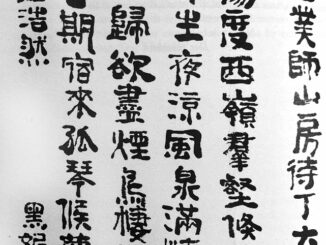 業師山房待丁大
陽度西嶺羣壑倏
生夜涼風泉滿清
歸欲盡煙鳥棲
期宿來孤琴候蘿
浩然 黑